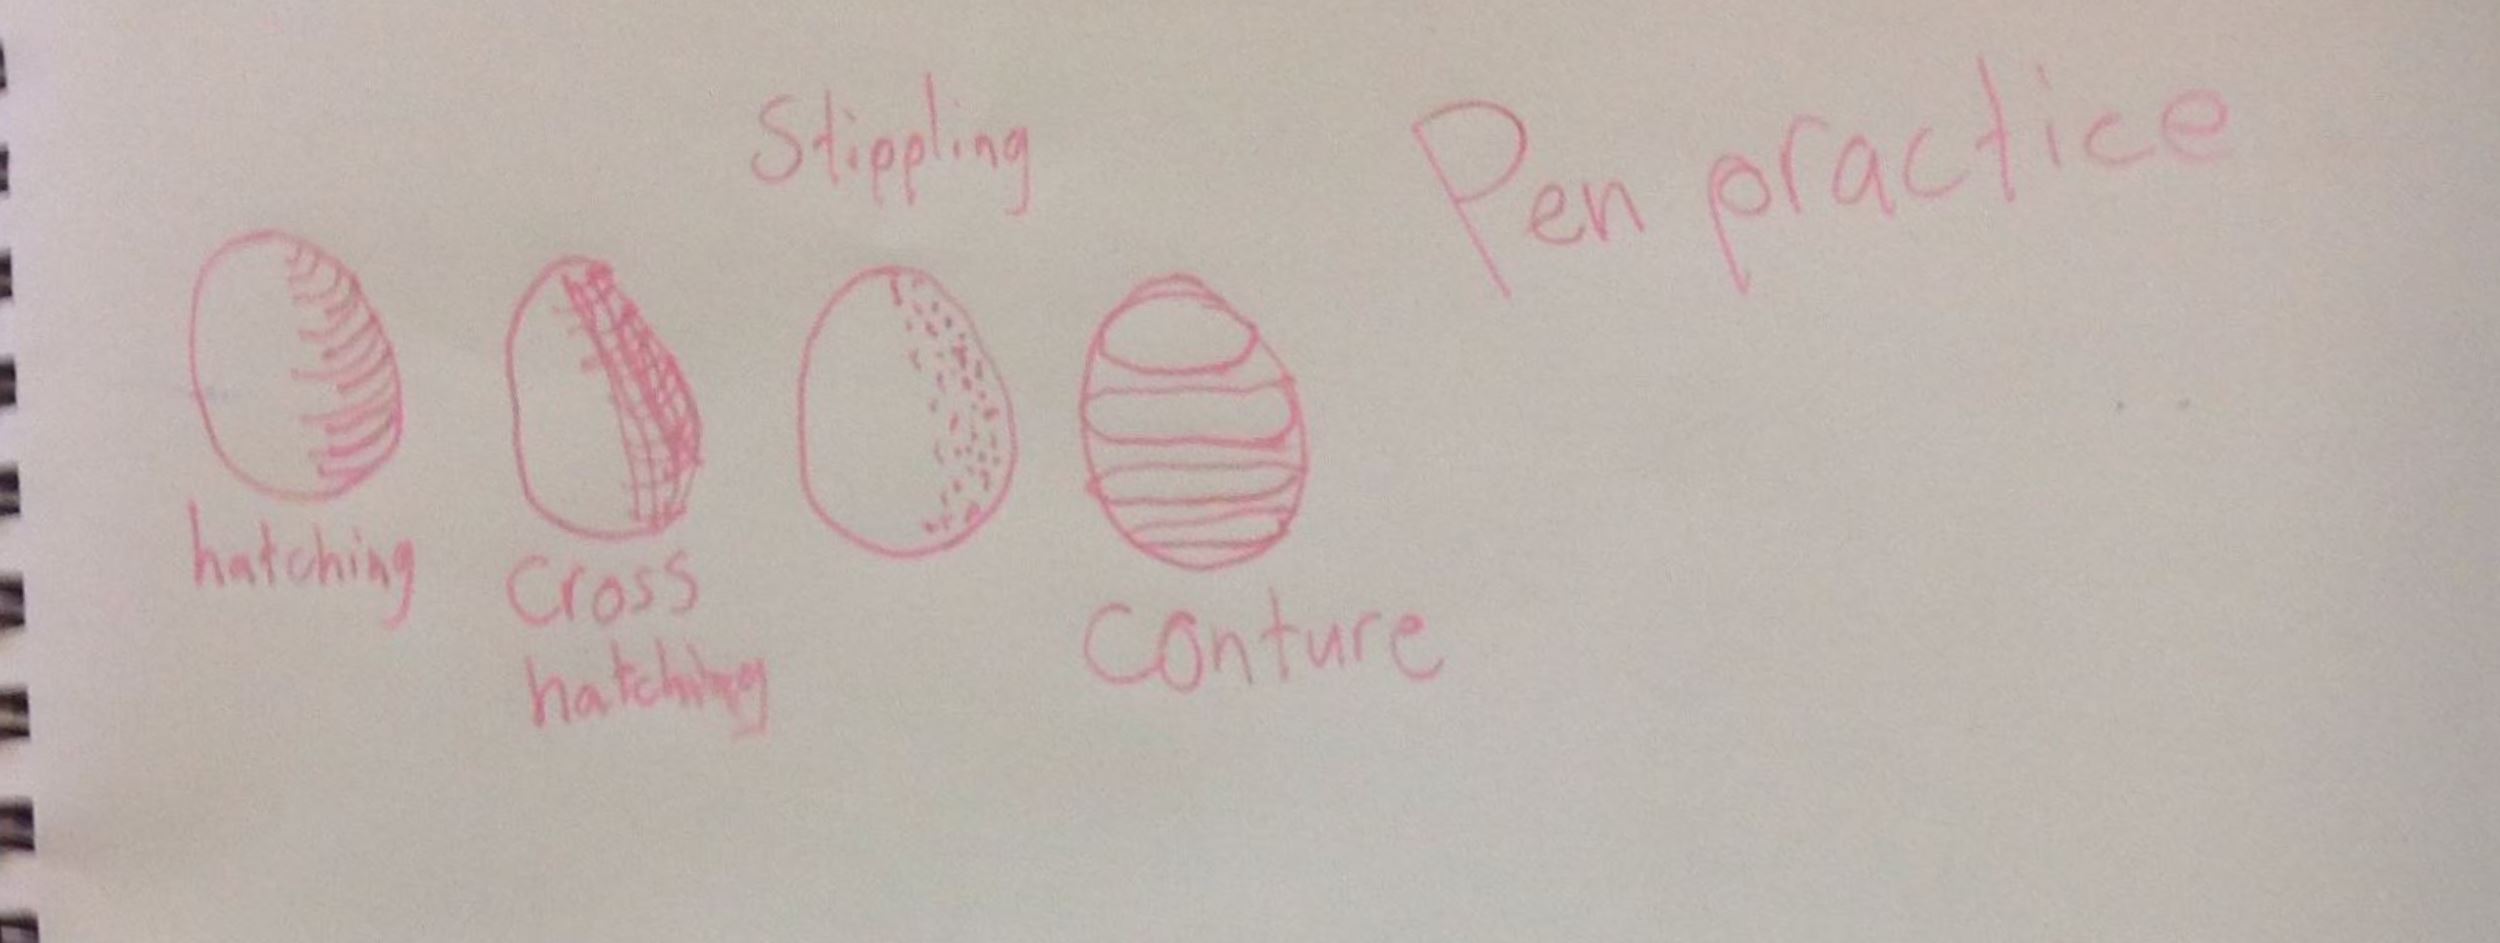 Stippling
Pen practice
hatching
Cross
hatching
Conture